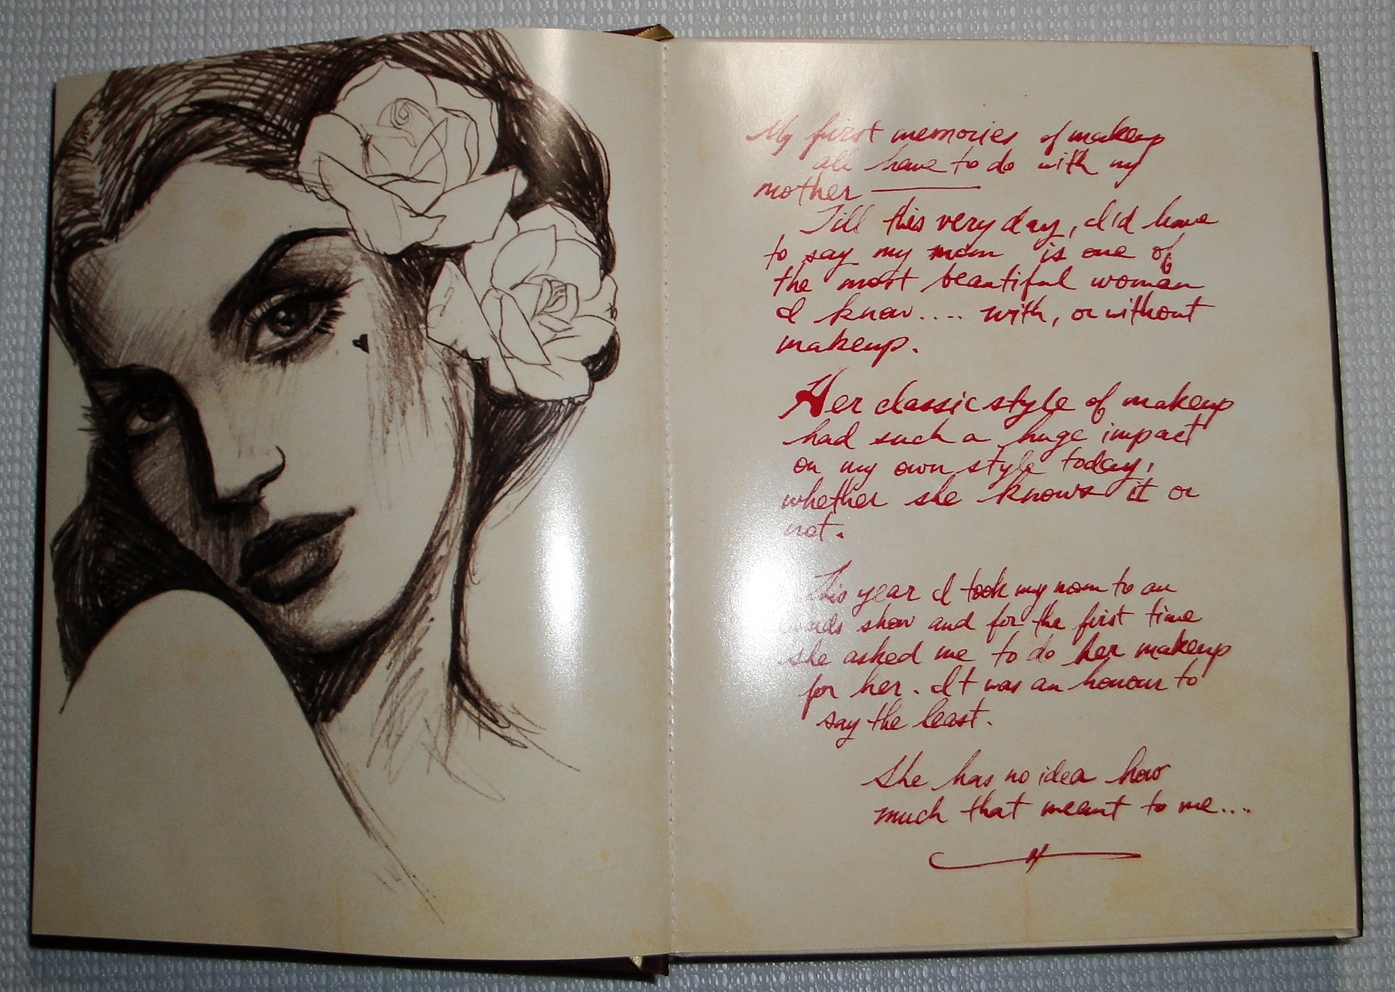 My first memories of makeup
all have to do with my
mother ———
Till this very day, I'd have
to say my mom is one of
the most beautiful woman
I know.... with, or without
makeup.
Her classic style of makeup
had such a huge impact
on my own style today,
whether she knows it or
not.
This year I took my mom to an
show and for the first time
she asked me to do her makeup
for her. It was an honour to
say the least.
She has no idea how
much that meant to me....